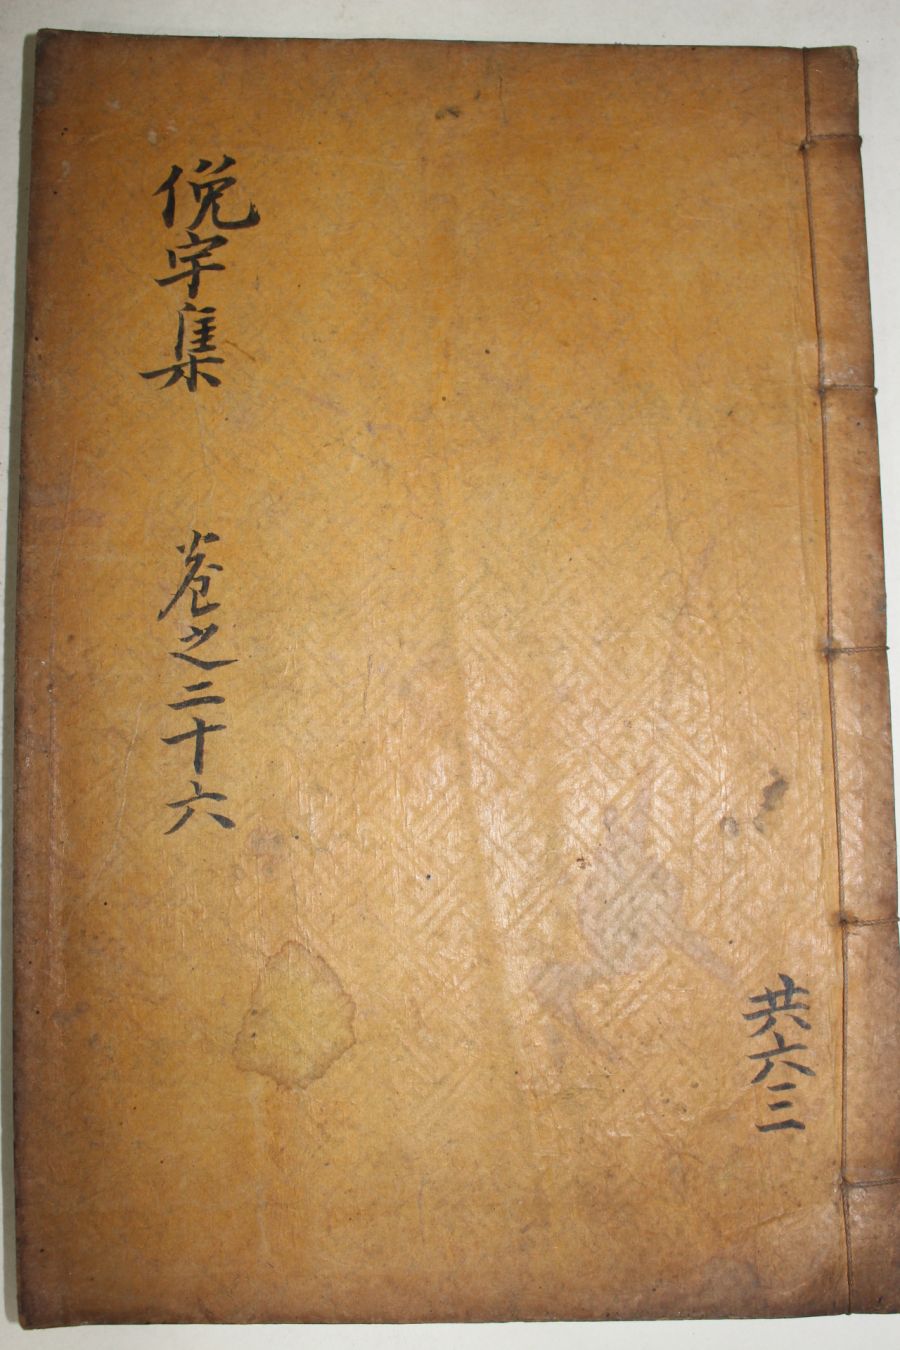 俛宇集
卷之二十六
共六三